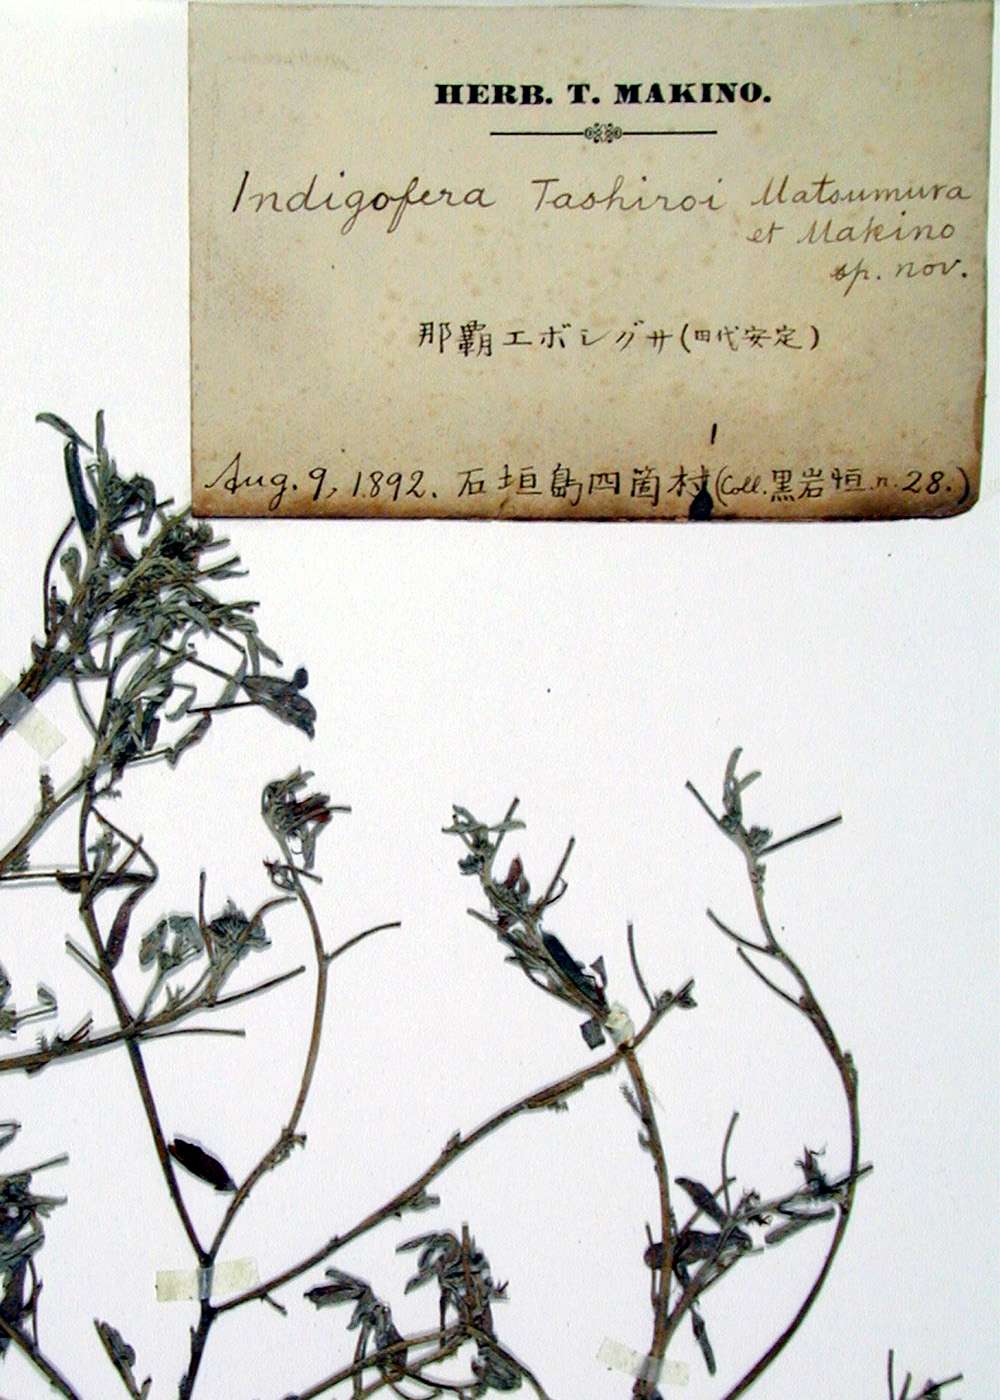 HERB. T. MAKINO.
Indigofera Tashiroi Matsumura
et Makino
sp. nov.
那覇エボシグサ(田代安定)
Aug. 9, 1892. 石垣島四箇村(Coll. 黒岩恒. n. 28.)